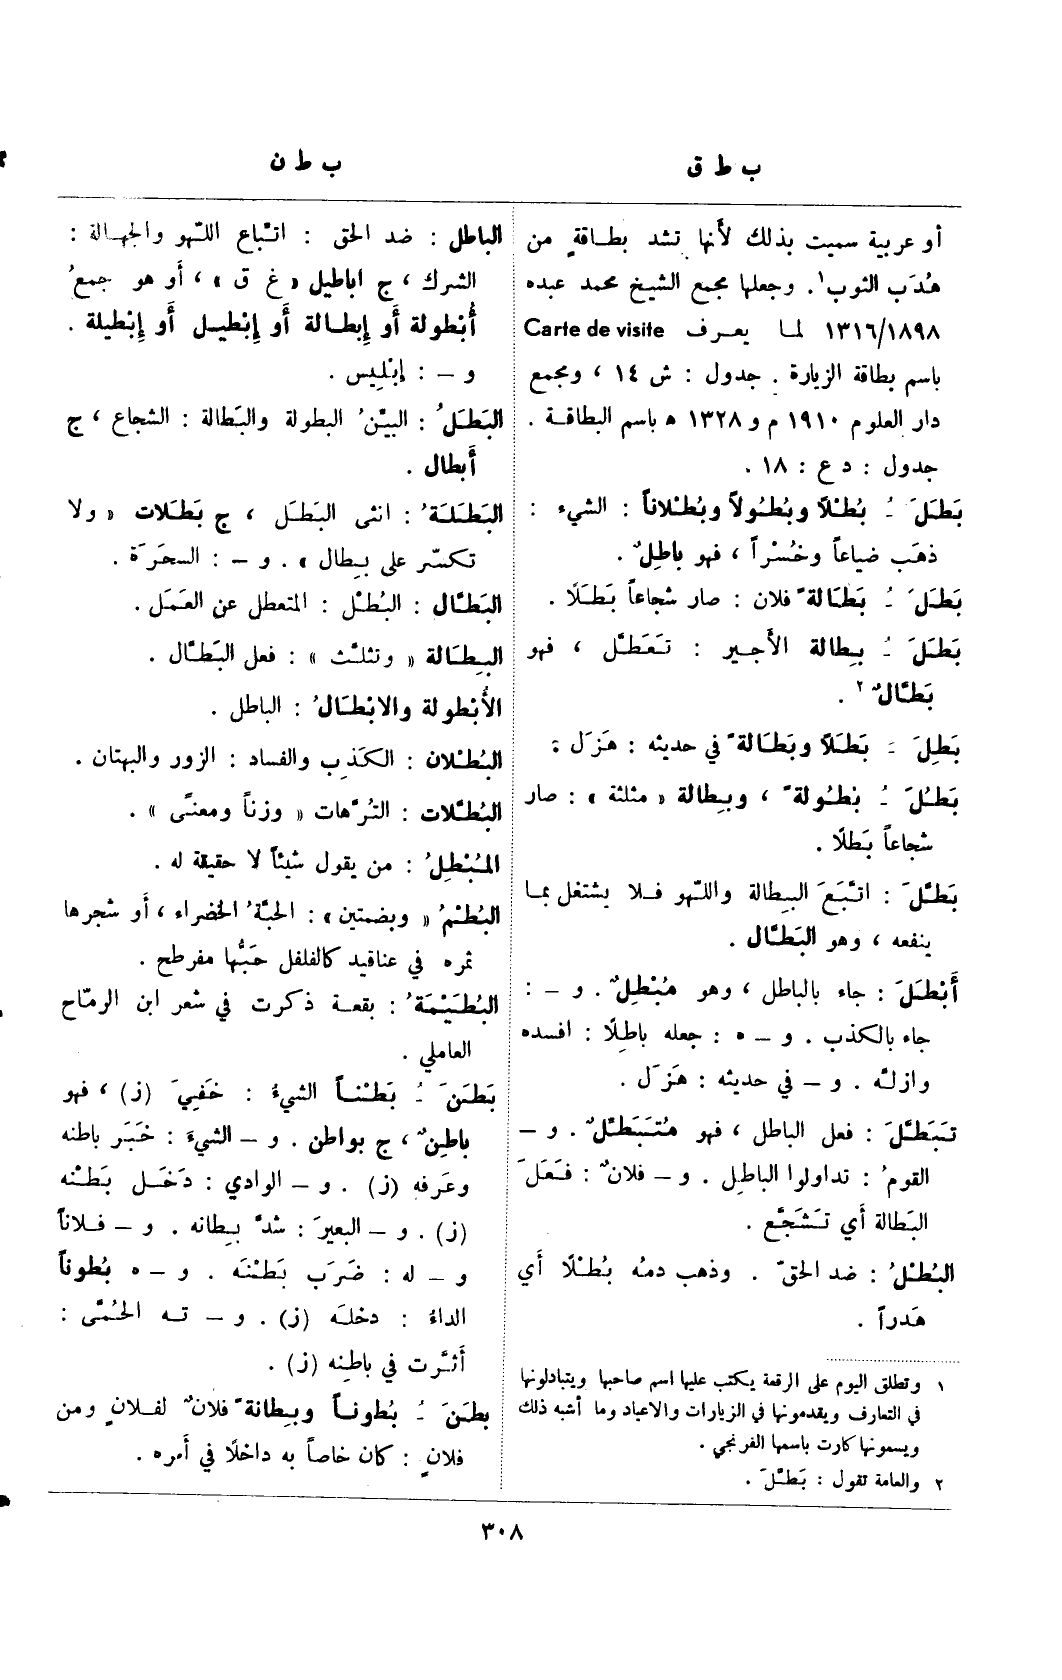 ب ط ق
ب ط ن
أو عربية سميت بذلك لأنها تشد بطاقةٍ من
هُدَب الثوب١. وجعلها مجمع الشيخ محمد عبده
١٣١٦/١٨٩٨ لما يعرف Carte de visite
باسم بطاقة الزيارة . جدول : ش ١٤ ، ومجمع
دار العلوم ١٩١٠ م و ١٣٢٨ ه باسم البطاقة .
جدول : د ع : ١٨ .
بَطَلَ ـُ بُطْلاً وبُطُولاً وبُطْلاناً : الشيء :
ذهَب ضياعاً وخُسْراً ، فهو باطِلٌ .
بَطَلَ ـُ بَطَالةً فلان : صار شجاعاً بَطَلًا .
بَطَلَ ـُ بِطالة الأجير : تعَطَّل ، فهو
بَطَّالٌ ٢ .
بَطِلَ ـَ بَطَلاً وبَطَالةً في حديثه : هَزَل :
بَطُلَ ـُ بُطُولةً ، وبِطالة « مثلثة » : صار
شجاعاً بَطلًا .
بَطَّلَ : اتَّبَعَ البِطالة واللّهو فلا يشتغل بما
ينفعه ، وهو البَطَّال .
أَبْطَلَ : جاء بالباطل ، وهو مُبْطِلٌ . و – :
جاء بالكذب . و – ه : جعله باطِلًا : افسده
وازله . و – في حديثه : هَزَل .
تَبَطَّلَ : فعل الباطل ، فهو مُتَبَطِّلٌ . و –
القومُ : تداولوا الباطِل . و – فلانٌ : فَعَلَ
البَطالة أي تشَجَّع .
البُطْلُ : ضد الحقّ . وذهب دمُه بُطْلًا أي
هَدراً .
١ وتطلق اليوم على الرقعة يكتب عليها اسم صاحبها ويتبادلونها
في التعارف ويقدمونها في الزيارات والاعياد وما أشبه ذلك
ويسمونها كارت باسمها الفرنجي .
٢ والعامة تقول : بَطَّلَ .
الباطل : ضد الحق : اتّباع اللّهو والجهالة :
الشرك ، ج اباطيل « غ ق » ، أو هو جمعُ
أُبْطولة أو إبطالة أو إبْطيل أو إبْطيلة .
و – : إبْلِيس .
البَطَلُ : البيّنُ البطولة والبَطالة : الشجاع ، ج
أبطال .
البَطَلَةُ : انثى البَطَل ، ج بَطَلات « ولا
تكسّر على بِطال » . و – : السحَرَة .
البَطَّال : البُطْل : المتعطل عن العَمَل .
البِطَالة « وتثلَّث » : فعل البَطَّال .
الأُبْطولة والابْطَالُ : الباطل .
البُطْلان : الكَذِب والفساد : الزور والبهتان .
البُطَّلات : التُرَّهات « وزناً ومعنًى » .
المُبْطِلُ : من يقول شيئاً لا حقيقة له .
البُطْمُ « وبضمتين » : الحبَّةُ الخضراء ، أو شجرها
ثمره في عناقيد كالفلفل حَبُّها مفرطح .
البُطَيْمَةُ : بقعة ذكرت في شعر ابن الرمّاح
العاملي .
بَطَنَ ـُ بَطْناً الشيءُ : خَفِيَ (ز) ، فهو
باطِنٌ ، ج بواطن . و – الشيءَ : خَبَر باطنه
وعَرفه (ز) . و – الوادي : دَخَل بَطْنه
(ز) . و – البعيرَ : شدّ بِطانه . و – فلاناً
و – له : ضَرَب بَطْنَه . و – ه بُطوناً
الداءُ : دخلَه (ز) . و – ته الحُمَّى :
أثَّرت في باطِنه (ز) .
بطَنَ ـُ بُطوناً وبِطانةً فلانٌ لفلانٍ ومن
فلانٍ : كان خاصاً به داخلًا في أمره .
٣٠٨